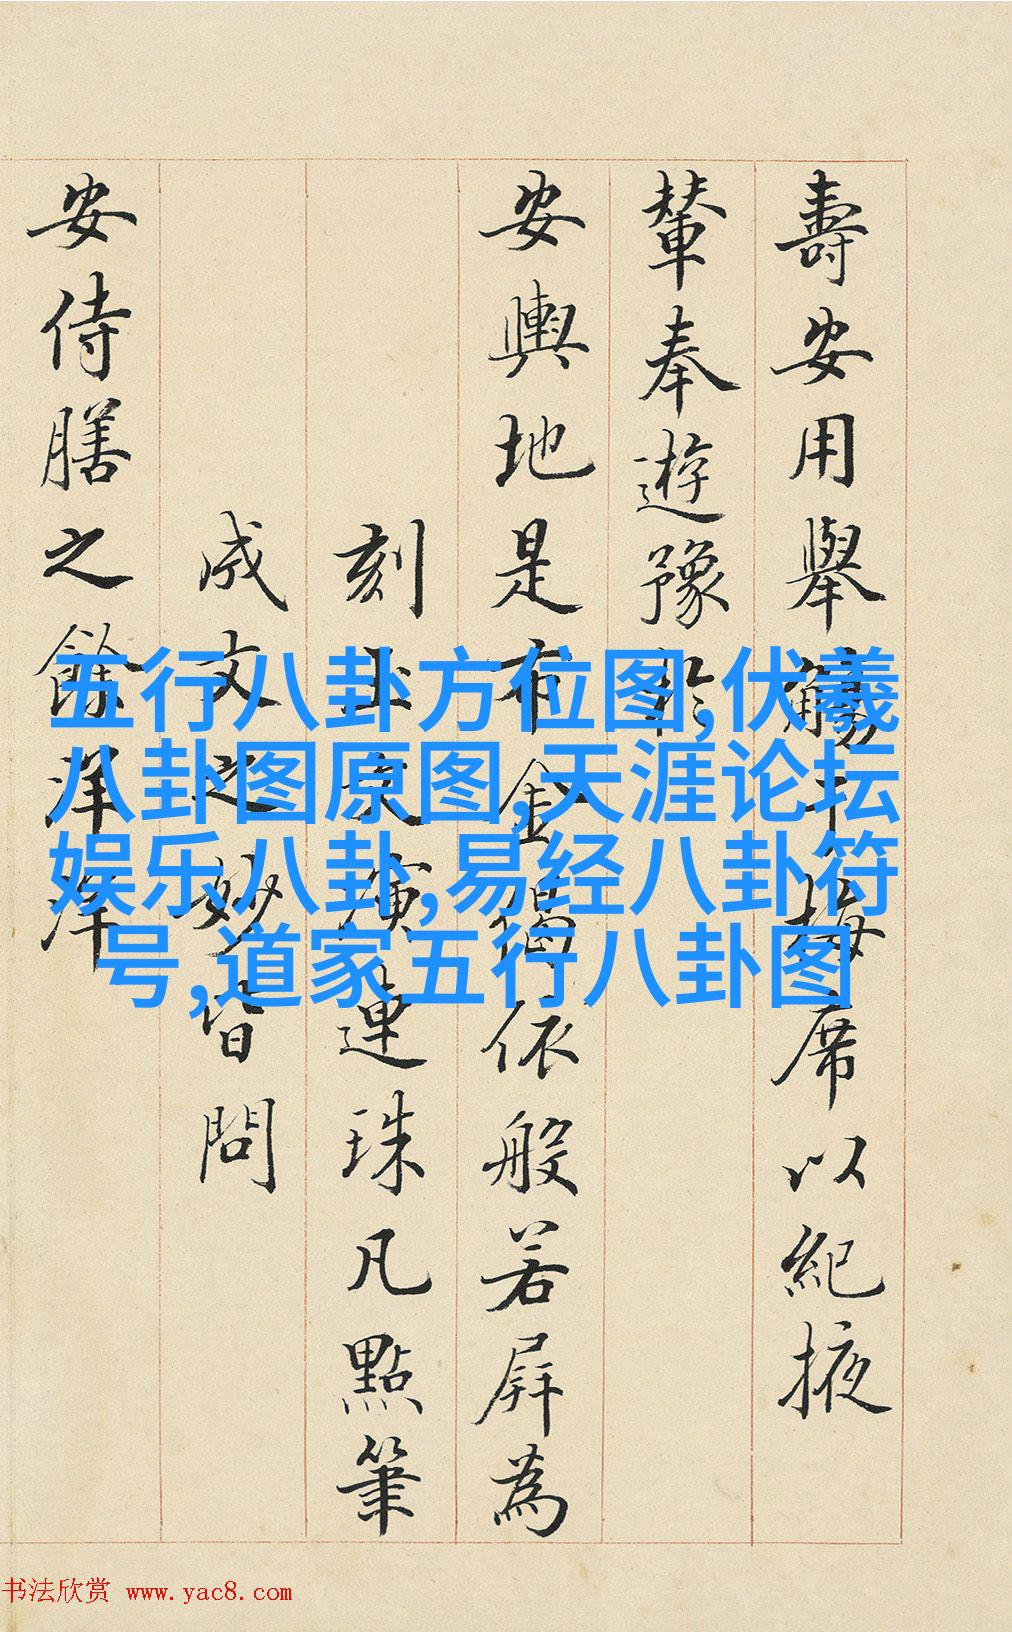 壽安用舉觴梅席以紀掖
輦奉遊豫於
安輿地是布金偈依般若屏為
刻玉演連珠凡點筆
成文之妙皆問
安侍膳之餘洋洋
五行八卦方位图,伏羲
八卦图原图,天涯论坛
娱乐八卦,易经八卦符
号,道家五行八卦图
书法欣赏 www.yac8.com